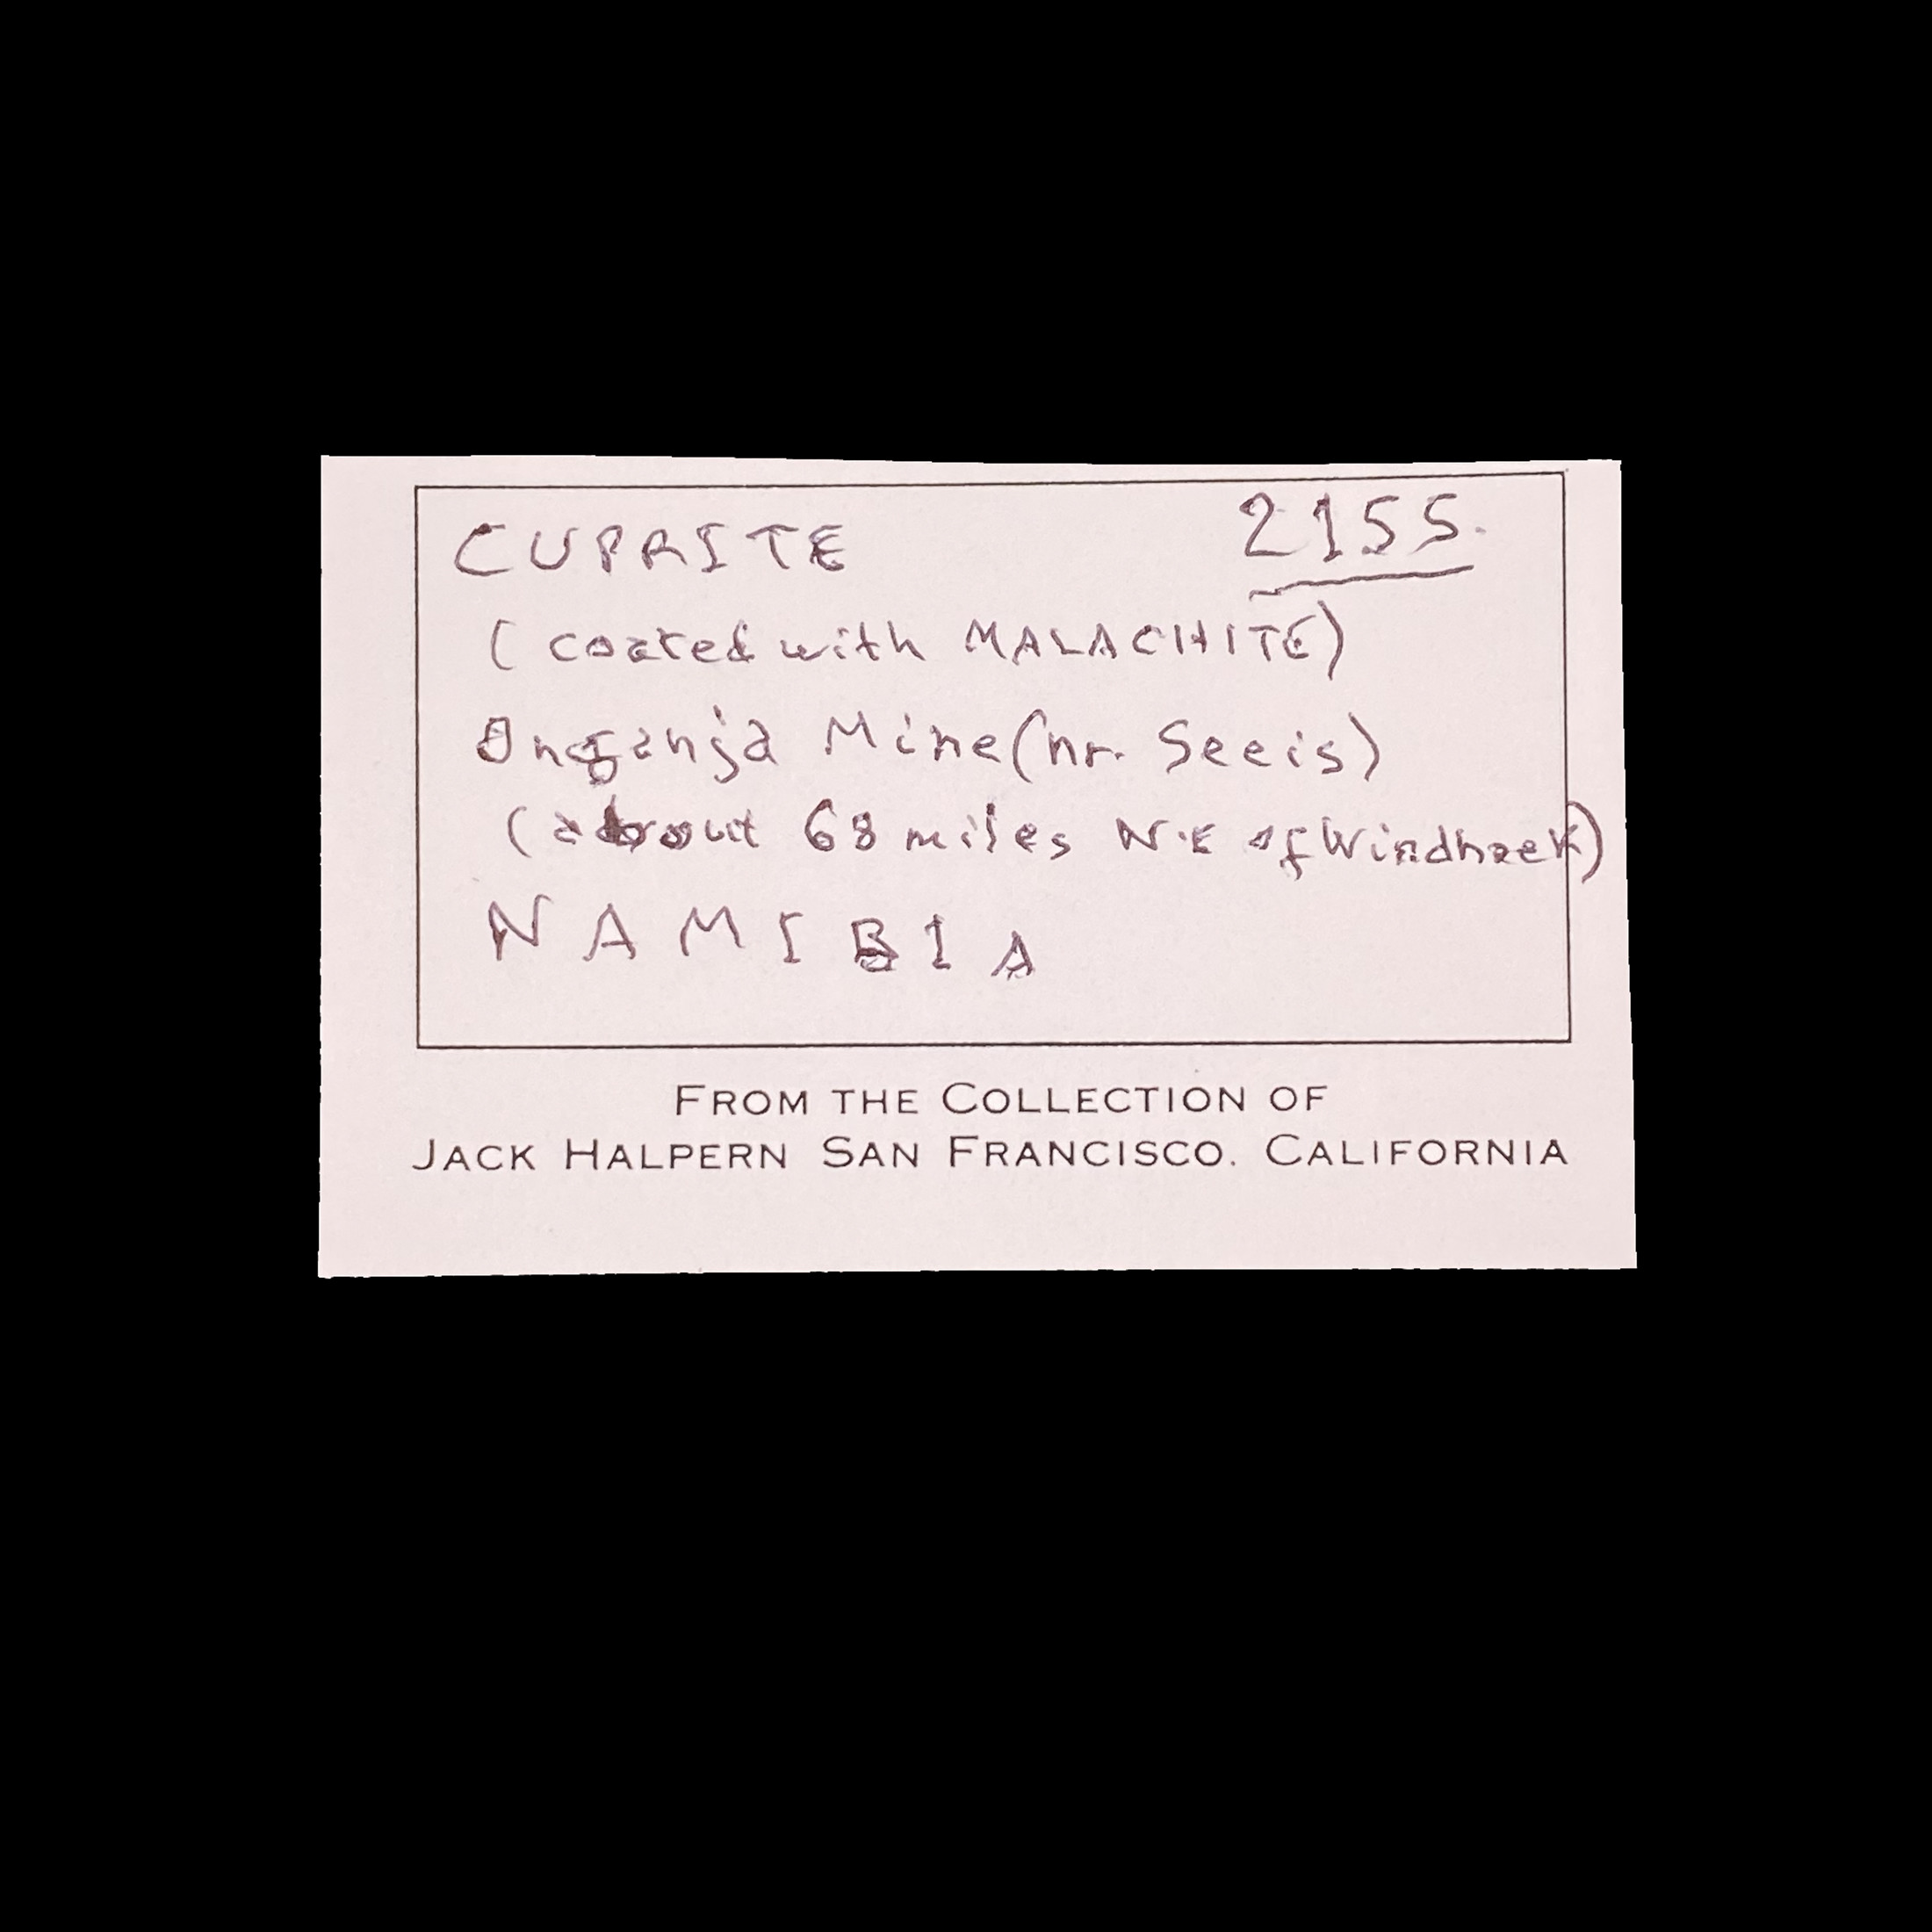 CUPRITE 2155.
(coated with MALACHITE)
Onganja Mine (nr. Seeis)
(about 68 miles N.E of Windhoek)
NAMIBIA
FROM THE COLLECTION OF
JACK HALPERN SAN FRANCISCO. CALIFORNIA